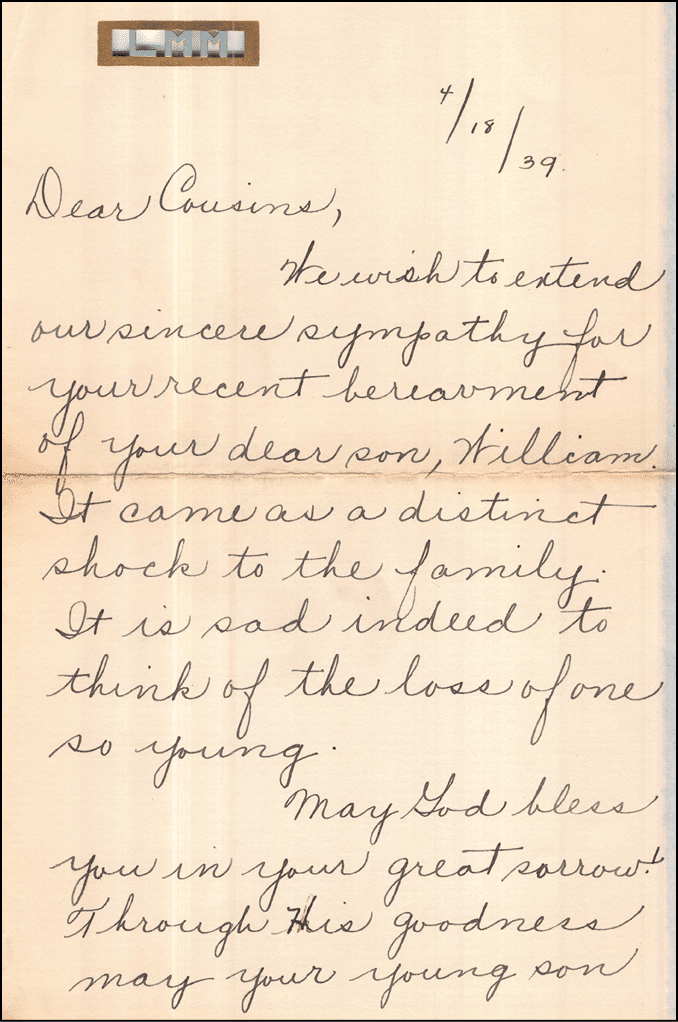 LMM
4/18/39.
Dear Cousins,
We wish to extend
our sincere sympathy for
your recent bereavment
of your dear son, William.
It came as a distinct
shock to the family.
It is sad indeed to
think of the loss of one
so young.
May God bless
you in your great sorrow!
Through His goodness
may your young son